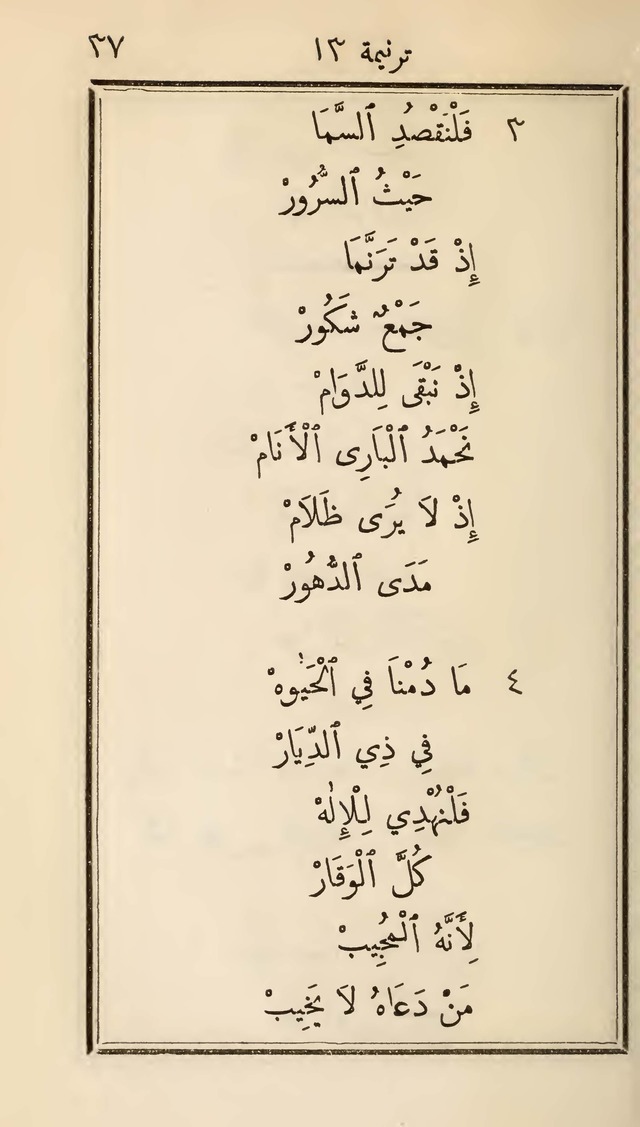 ترنيمة ١٣ ٣٧
٣ فَلْنَقْصُدِ ٱلسَّمَا
حَيْثُ ٱلسُّرُورْ
إِذْ قَدْ تَرَنَّمَا
جَمْعٌ شَكُورْ
إِذْ نَبْقَى لِلدَّوَامْ
نَحْمَدُ ٱلْبَارِى ٱلْأَنَامْ
إِذْ لَا يُرَى ظَلَامْ
مَدَى ٱلدُّهُورْ
٤ مَا دُمْنَا فِي ٱلْحَيٰوهْ
فِي ذِي ٱلدِّيَارْ
فَلْنُهْدِي لِلْإِلٰهْ
كُلَّ ٱلْوَقَارْ
لِأَنَّهُ ٱلْمُجِيبْ
مَنْ دَعَاهُ لَا يَخِيبْ